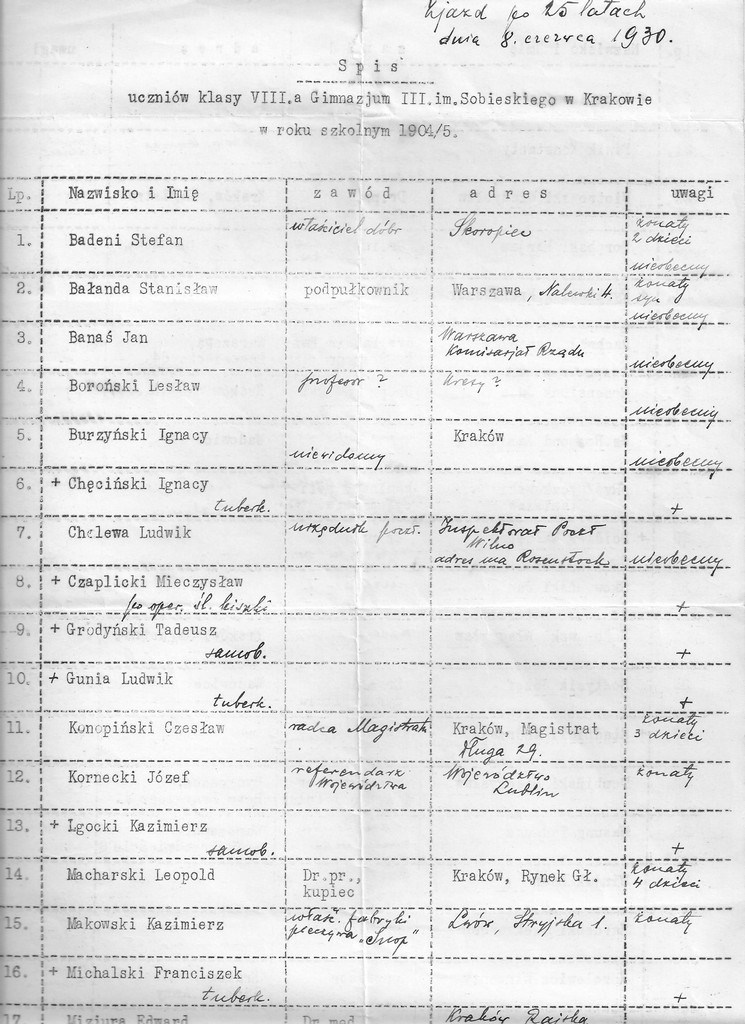 Zjazd po 25 latach
dnia 8. czerwca 1930.
Spis
uczniów klasy VIII.a Gimnazjum III.im.Sobieskiego w Krakowie
w roku szkolnym 1904/5.
Lp. Nazwisko i Imię zawód adres uwagi
1. Badeni Stefan właściciel dóbr żonaty
2 dzieci
nieobecny
2. Bałanda Stanisław podpułkownik Warszawa, Nalewki 4. żonaty
syn
nieobecny
3. Banaś Jan Warszawa
Komisarjat Rządu
nieobecny
4. Boroński Lesław profesor ? Kresy ?
nieobecny
5. Burzyński Ignacy Kraków
niewidomy nieobecny
6. + Chęciński Ignacy
tuberk. +
7. Cholewa Ludwik urzędnik poczt. Inspektorat Poczt
Wilno
adres ma Rosenstock nieobecny
8. + Czaplicki Mieczysław
po oper. śl. kiszki +
9. + Grodyński Tadeusz
samob. +
10. + Gunia Ludwik
tuberk. +
11. Konopiński Czesław radca Magistratu Kraków, Magistrat żonaty
Długa 29. 3 dzieci
12. Kornecki Józef referendarz Województwo żonaty
Województwa Lublin
13. + Lgocki Kazimierz
samob. +
14. Macharski Leopold Dr.pr., Kraków, Rynek Gł. żonaty
kupiec 4 dzieci
15. Makowski Kazimierz właśc. fabryki Lwów, Stryjska 1. żonaty
pieczywa „Snop"
16. + Michalski Franciszek
tuberk. +
17. Miziura Edward Dr.med. Kraków Rajska